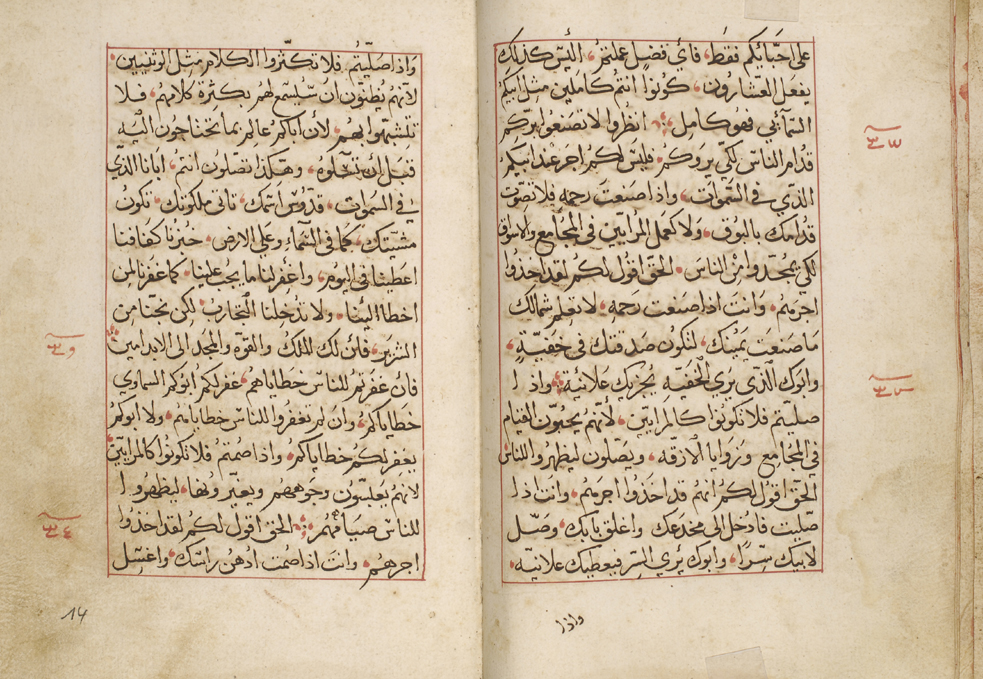 على احبايكم فقط، فاى فضل عملتم، اليس كذلك
يفعل العشارون، كونوا انتم كاملين مثل ابيكم
السمآيي فهو كامل انظروا لا تصنعوا بركم
قدام الناس لكي يروكم، فليس لكم اجر عند ابيكم
الذي في السموات، واذا صنعت رحمه فلا تصوت
قدامك بالبوق، ولا كعمل المرايين في المجامع والاسواق
لكي يمجدوا من الناس، الحق اقول لكم لقد اخذوا
اجرهم، وانت اذا صنعت رحمه، لا تعلم شمالك
ما صنعت يمينك، لتكون صدقتك في خفيّة،
وابوك الذي يري الخفيه يجزيك علانية واذا
صليتم فلا تكونوا كالمرايين، لانهم يحبون القيام
في المجامع وزوايا الازقه، ويصلون ليظهروا للناس
الحق اقول لكم انهم قد اخذوا اجرهم، وانت اذا
صليت فادخل الى مخدعك واغلق بابك، وصّل
لابيك سّرا، وابوك يري السر فيعطيك علانيه،
واذا
٣٢
٣٣
واذا صليتم فلا تكثروا الكلام مثل الوثنيين،
لانهم يظنون ان سيستمع لهم بكثرة كلامهم، فلا
تتشبهوا بهم، لان اباكم عالم بما تحتاجون اليه
قبل ان تسئلوه، وهكذا تصلون انتم، ابانا الذي
في السموات، قدوس اسمك، تاتى ملكوتك، تكون
مشيتك، كما في السماء وعلى الارض، خبزنا كفافنا
اعطينا في اليوم، واغفر لنا ما يجب علينا، كما غفرنا لمن
اخطا الينا، ولا تدخلنا التجارب، لكن نجنا من
الشرير، فان لك الملك والقوه والمجد الى الابد امين
فان غفرتم للناس خطاياهم، غفر لكم ابوكم السماوي
خطاياكم، وان لم تغفروا للناس خطاياهم، ولا ابوكم
يغفر لكم خطاياكم، واذا صمتم فلا تكونوا كالمرايين
لانهم يعبسون وجوههم ويغيرونها، ليظهروا
للناس صيامهم الحق اقول لكم لقد اخذوا
اجرهم، وانت اذا صمت ادهن راسك، واغسل
٣٤
14